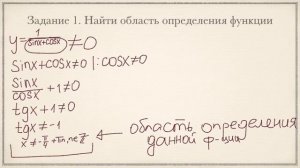 Задание 1. Найти область определения функции
y = 1/(sinx+cosx) ≠0
sinx+cosx≠0 |:cosx≠0
sinx/cosx +1≠0
tgx+1≠0
tgx≠-1
x≠-π/4+πn, n∈Z
область определения
данной ф-ции